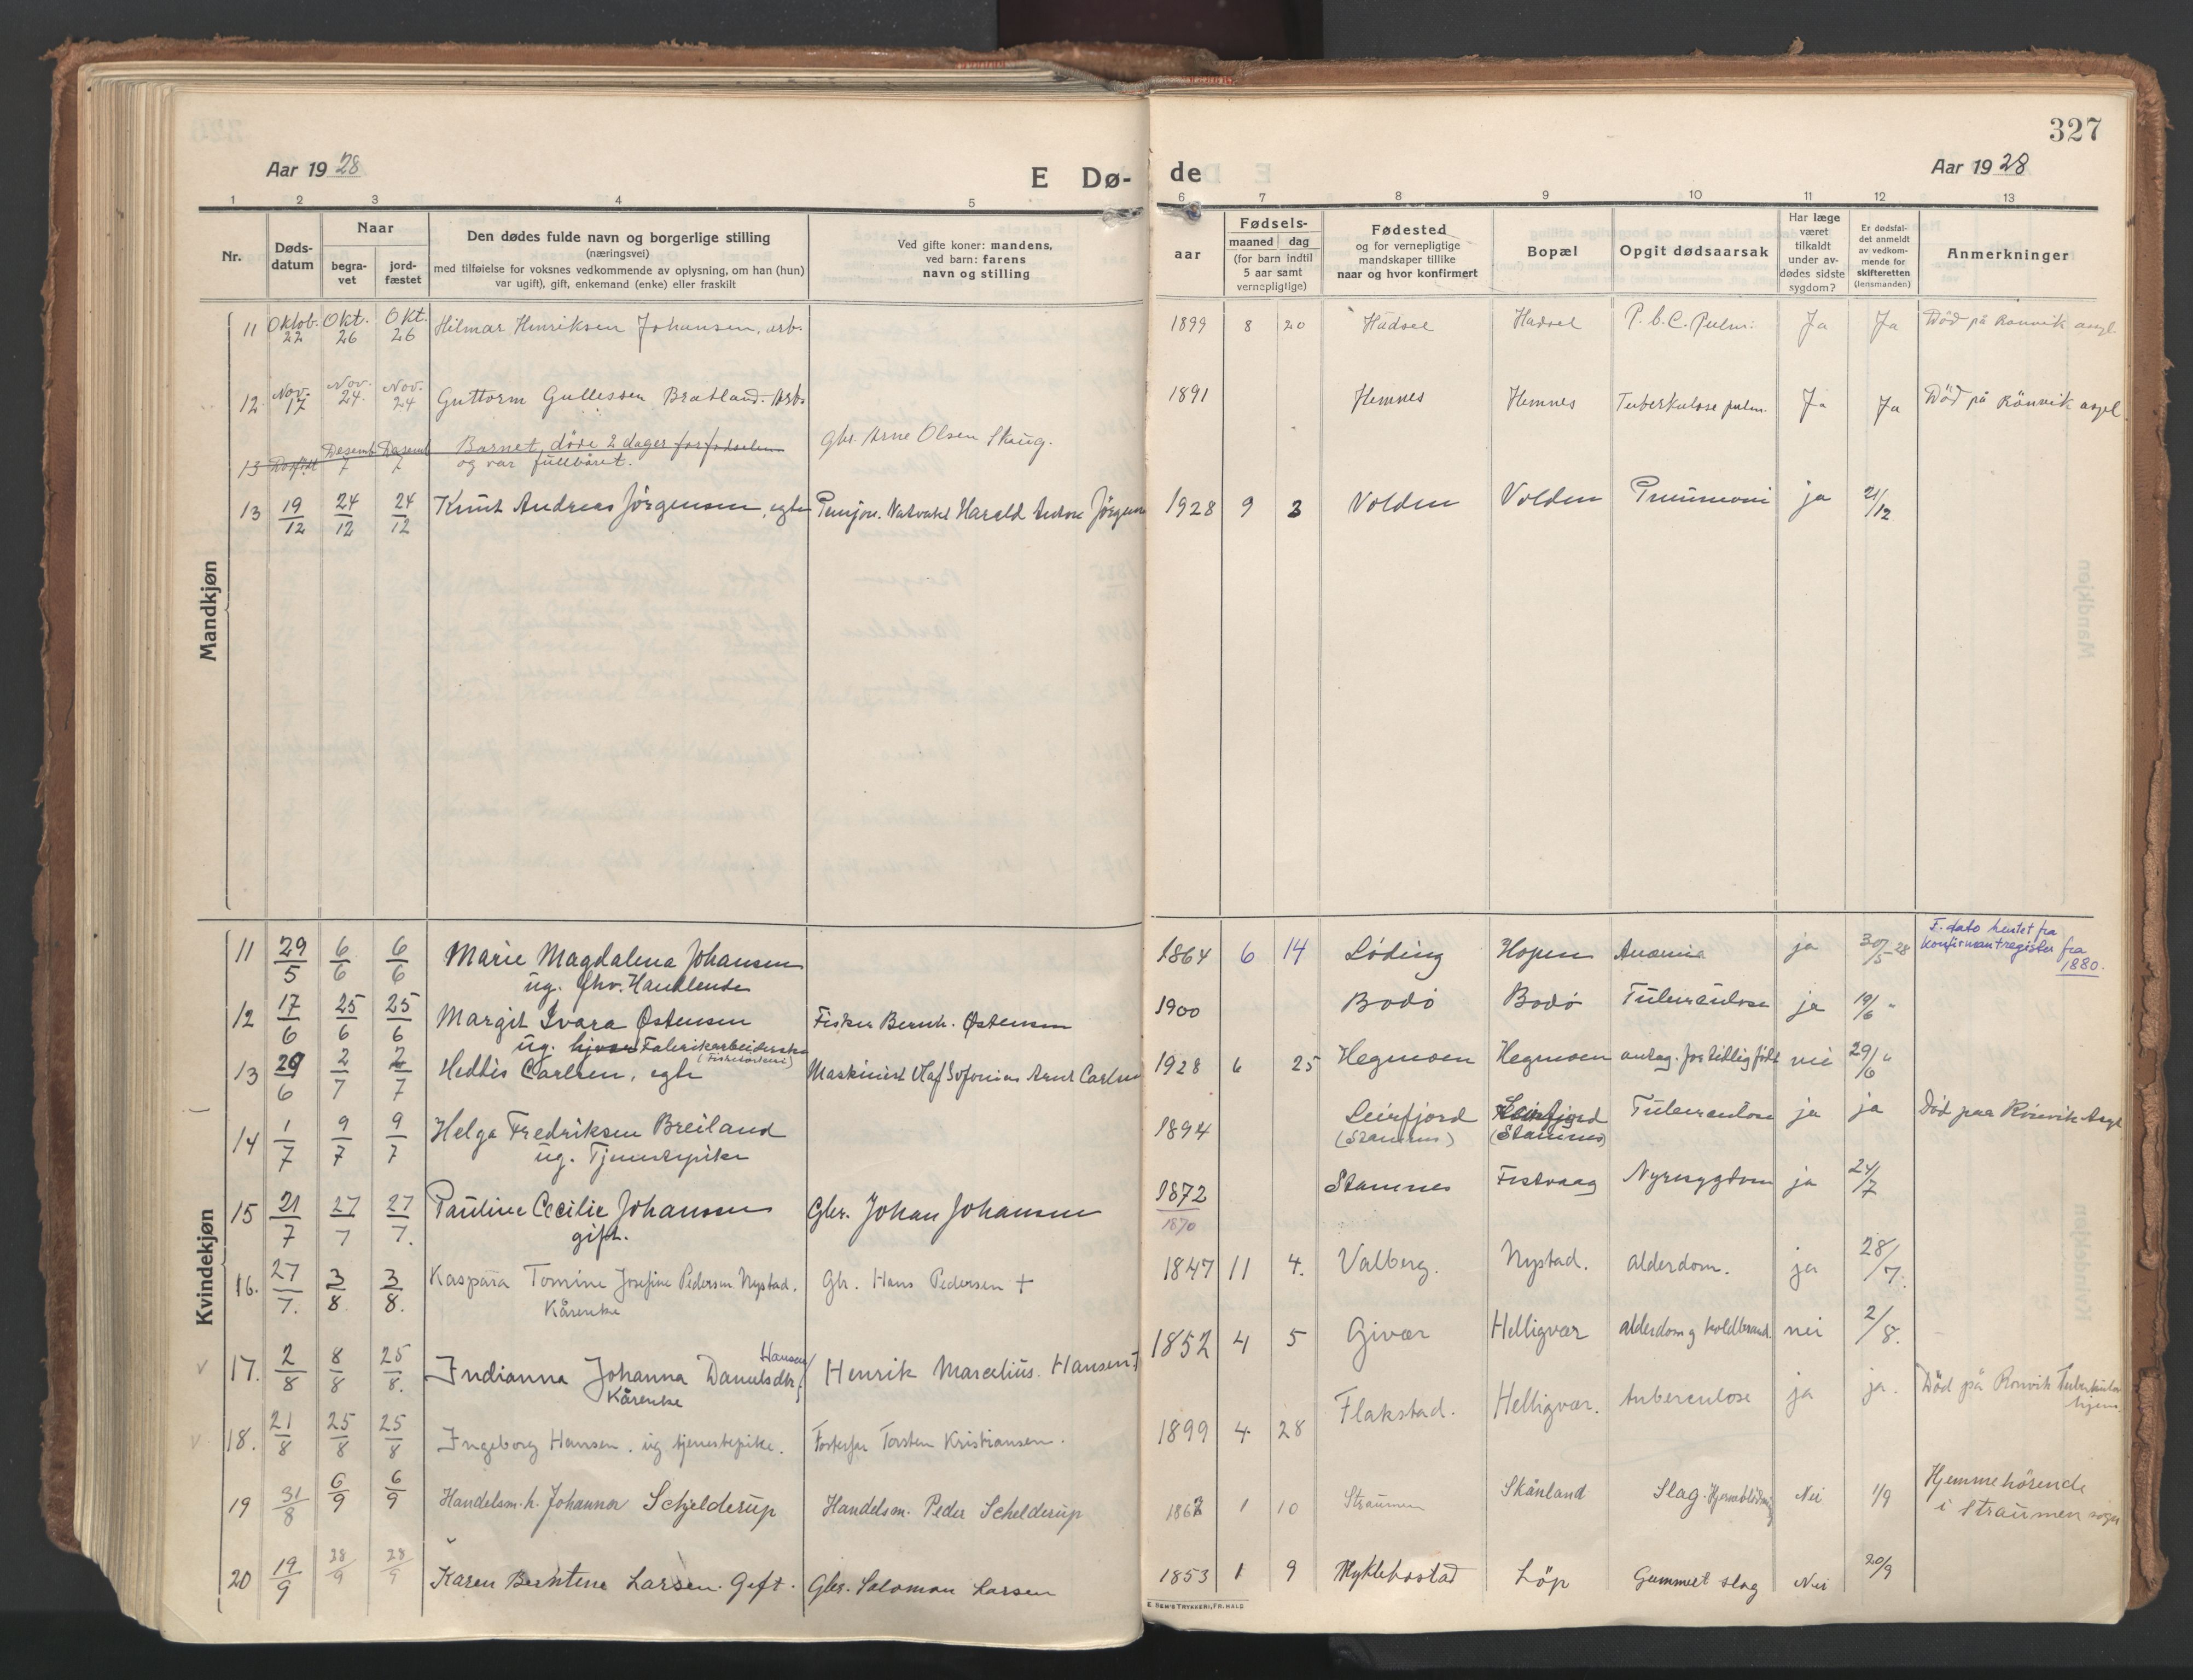 327
Aar 1928
E Dø-
de
Aar 1928
1 2 3 4 5 6 7 8 9 10 11 12 13
Nr.
Døds-
datum
Naar
begra-
vet
jord-
fæstet
Den dødes fulde navn og borgerlige stilling
(næringsvei)
med tilføielse for voksnes vedkommende av oplysning, om han (hun)
var ugift), gift, enkemand (enke) eller fraskilt
Ved gifte koner: mandens,
ved barn: farens
navn og stilling
aar
Fødsels-
maaned dag
(for barn indtil
5 aar samt
vernepligtige)
Fødested
og for vernepligtige
mandskaper tillike
naar og hvor konfirmert
Bopæl
Opgit dødsaarsak
Har læge
været
tilkaldt
under av-
dødes sidste
sygdom?
Er dødsfal-
det anmeldt
av vedkom-
mende for
skifteretten
(lensmanden)
Anmerkninger
Mandkjøn
11 Oktob. 22 Okt. 26 Okt. 26 Hilmar Henriksen Johansen, arb. 1899 8 20 Hadsel Hadsel T.b.C. pulm. Ja Ja Død på Rønvik asyl.
12. Nov. 17 Nov. 24. Nov. 24 Guttorm Gullessen Bratland. Arb. 1891 Hemnes Hemnes Tuberkulose pulm. Ja Ja Død på Rønvik asyl
13 Dødfødt Desemb. 7 Desemb. 7 Barnet døde 2 dager før fødselen
og var fullbåret.
gbr. Arne Olsen Skaug.
13 19/12 24/12 24/12 Knut Andreas Jørgensen, egte Harald Anton Jørgensen 1928 9 3 Volden Volden Pneumoni ja 21/12
Kvindekjøn
11 29/5 6/6 6/6 Marie Magdalena Johansen
ug. fhv. Handlende
1864 6 14 Løding Hopen Anæmia ja 30/5-28 F. dato hentet fra
konfirmantregister fra
1880.
12 17/6 25/6 25/6 Margit Ivara Østensen
ug. Fabrikarbeiderske
Fisker Bernh. Østensen 1900 Bodø Bodø Tuberculose ja 19/6 "
13 29/6 2/7 2/7 Heddis Carlsen, egte Maskinist Olaf Sofonias Arnt Carlsen 1928 6 25 Hegmoen Hegmoen antag. for tidlig født nei 29/6 "
14 1/7 9/7 9/7 Helga Fredriksen Breiland
ug. Tjenestepike
1894 Leirfjord
(Stamnes)
Leirfjord
(Stamnes)
Tuberculose ja ja Død paa Rønvik Asyl
15 21/7 27/7 27/7. Pauline Cecilie Johansen
gift.
Gbr. Johan Johansen 1872
1870
Stamnes Festvaag Nyresygdom ja 24/7
16. 27/7. 3/8. 3/8. Kaspara Tomine Josefine Pedersen Nystad.
Kårenke
Gbr. Hans Pedersen + 1847 11 4. Valberg. Nystad. alderdom. ja 28/7.
17. 2/8 8/8 25/8. Indianna Johanna Danielsdtr. Hansen
Kårenke
Henrik Marcelius Hansen + 1852 4 5 Givær Helligvær alderdom og koldbrand. nei 2/8.
18. 21/8 25/8 25/8 Ingeborg Hansen. ug tjenestepike. Fosterfar Torsten Kristiansen. 1899 4 28 Flakstad. Helligvær. tuberculose ja ja. Død på Rønvik Tuberkulose
hjem.
19 31/8 6/9 6/9 Handelsm. h. Johanna Schjelderup Handelsm. Peder Schelderup 1 10 Straumen Skånland Slag. Hjerneblødning Nei 1/9 Hjemmehørende
i Straumen sogn
20 19/9 28/9 28/9 Karen Berntine Larsen. Gift. Gbr. Salomon Larsen 1853 1 9 Myklebostad Løp Gammelt slag Nei 20/9
E. SEM'S TRYKKERI, FR. HALD